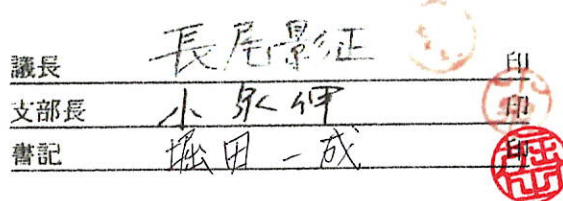 議長 長尾景征 印
支部長 小泉伸 印
書記 堀田一成 印